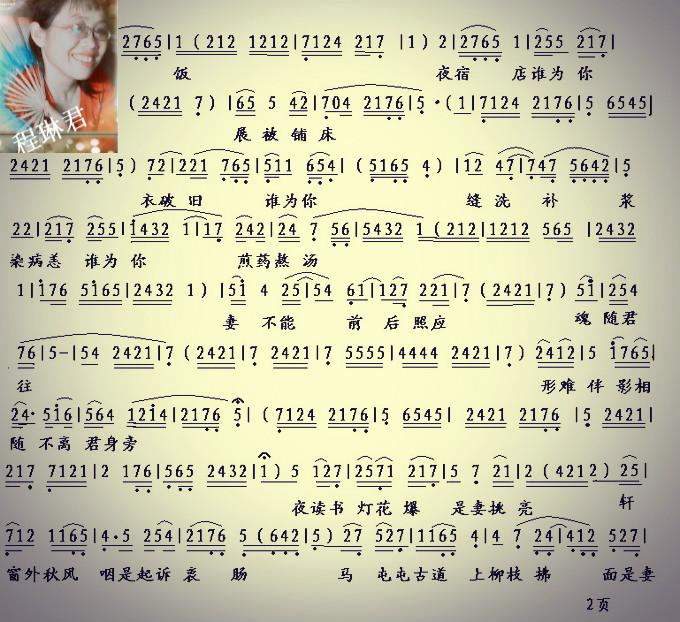 2765|1 (212 1212|7124 217 |1) 2|2765 1|255 217|
饭 夜宿 店谁为 你
程琳君
(2421 7) |65 5 42|704 2176|5·(1|7124 2176|5 6545|
展 被 铺 床
2421 2176|5) 72|221 765|511 654|(5165 4) |12 47|747 5642|5
衣破 旧 谁为你 缝 洗 补 浆
22|217 255|1432 1|17 242|24 7 56|5432 1 (212|1212 565 |2432
染病恙 谁为 你 煎药熬 汤
1|176 5165|2432 1) |51 4 25|54 61|127 221|7 (2421|7) 51|254
妻 不能 前 后 照应 魂 随君
76|5-|54 2421|7 (2421|7 2421|7 5555|4444 2421|7) 2412|5 1765|
往 形难 伴 影相
24· 516|564 1214|2176 5|(7124 2176|5 6545| 2421 2176 |5 2421|
随 不离 君身旁
217 7121|2 176|565 2432|1) 5 127|2571 217|5 7 21|2 (4212) 25|
夜读书 灯花 爆 是妻挑 亮 轩
712 1165|4·5 254|2176 5 (642|5) 27 527|1165 4|4 7 24|412 527|
窗外秋风 咽是起诉 衷 肠 马 屯屯古道 上柳枝 拂 面是妻
2页